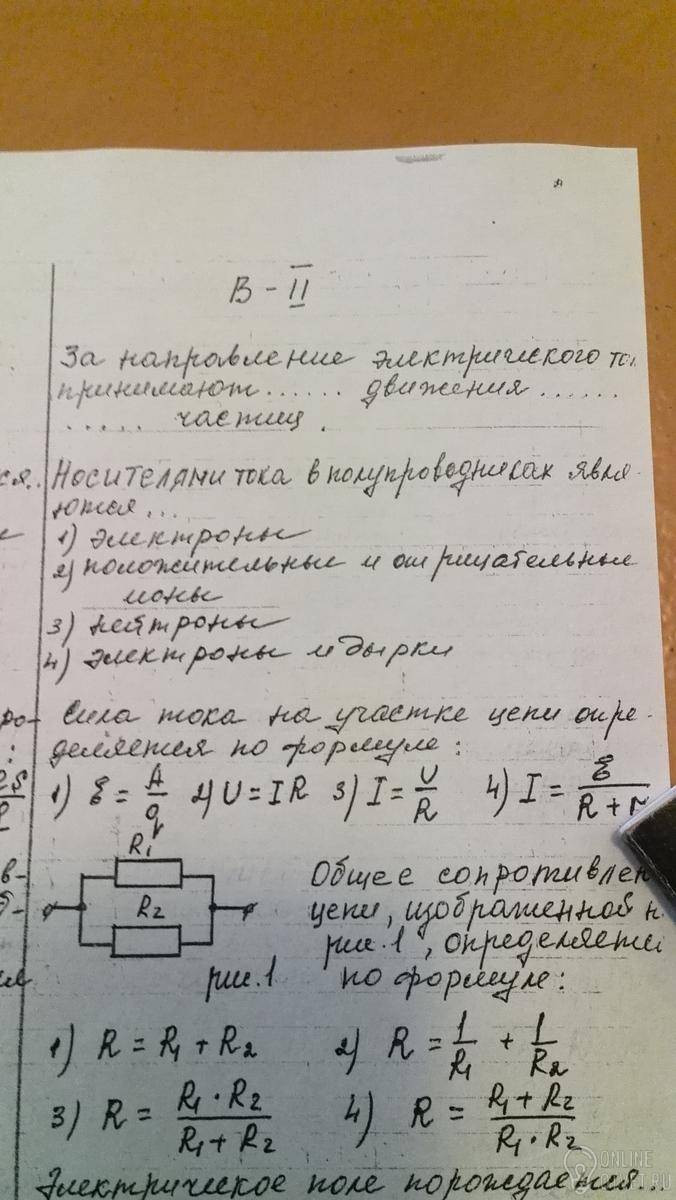 В - II
За направление электрического
принимают ...... движения ......
..... частиц.
Носителями тока в полупроводниках явля-
ются...
1) электроны
2) положительные и отрицательные
ионы
3) нейтроны
4) электроны и дырки
Сила тока на участке цепи опре-
деляется по формуле:
1) ℰ = A/q 2) U = IR 3) I = U/R 4) I = ℰ/(R + r
R₁
R₂
рис. 1
Общее сопротивлен
цепи, изображенной н
рис. 1, определяется
по формуле:
1) R = R₁ + R₂ 2) R = 1/R₁ + 1/R₂
3) R = (R₁ · R₂)/(R₁ + R₂) 4) R = (R₁ + R₂)/(R₁ · R₂)
Электрическое поле порождается...
ONLINE